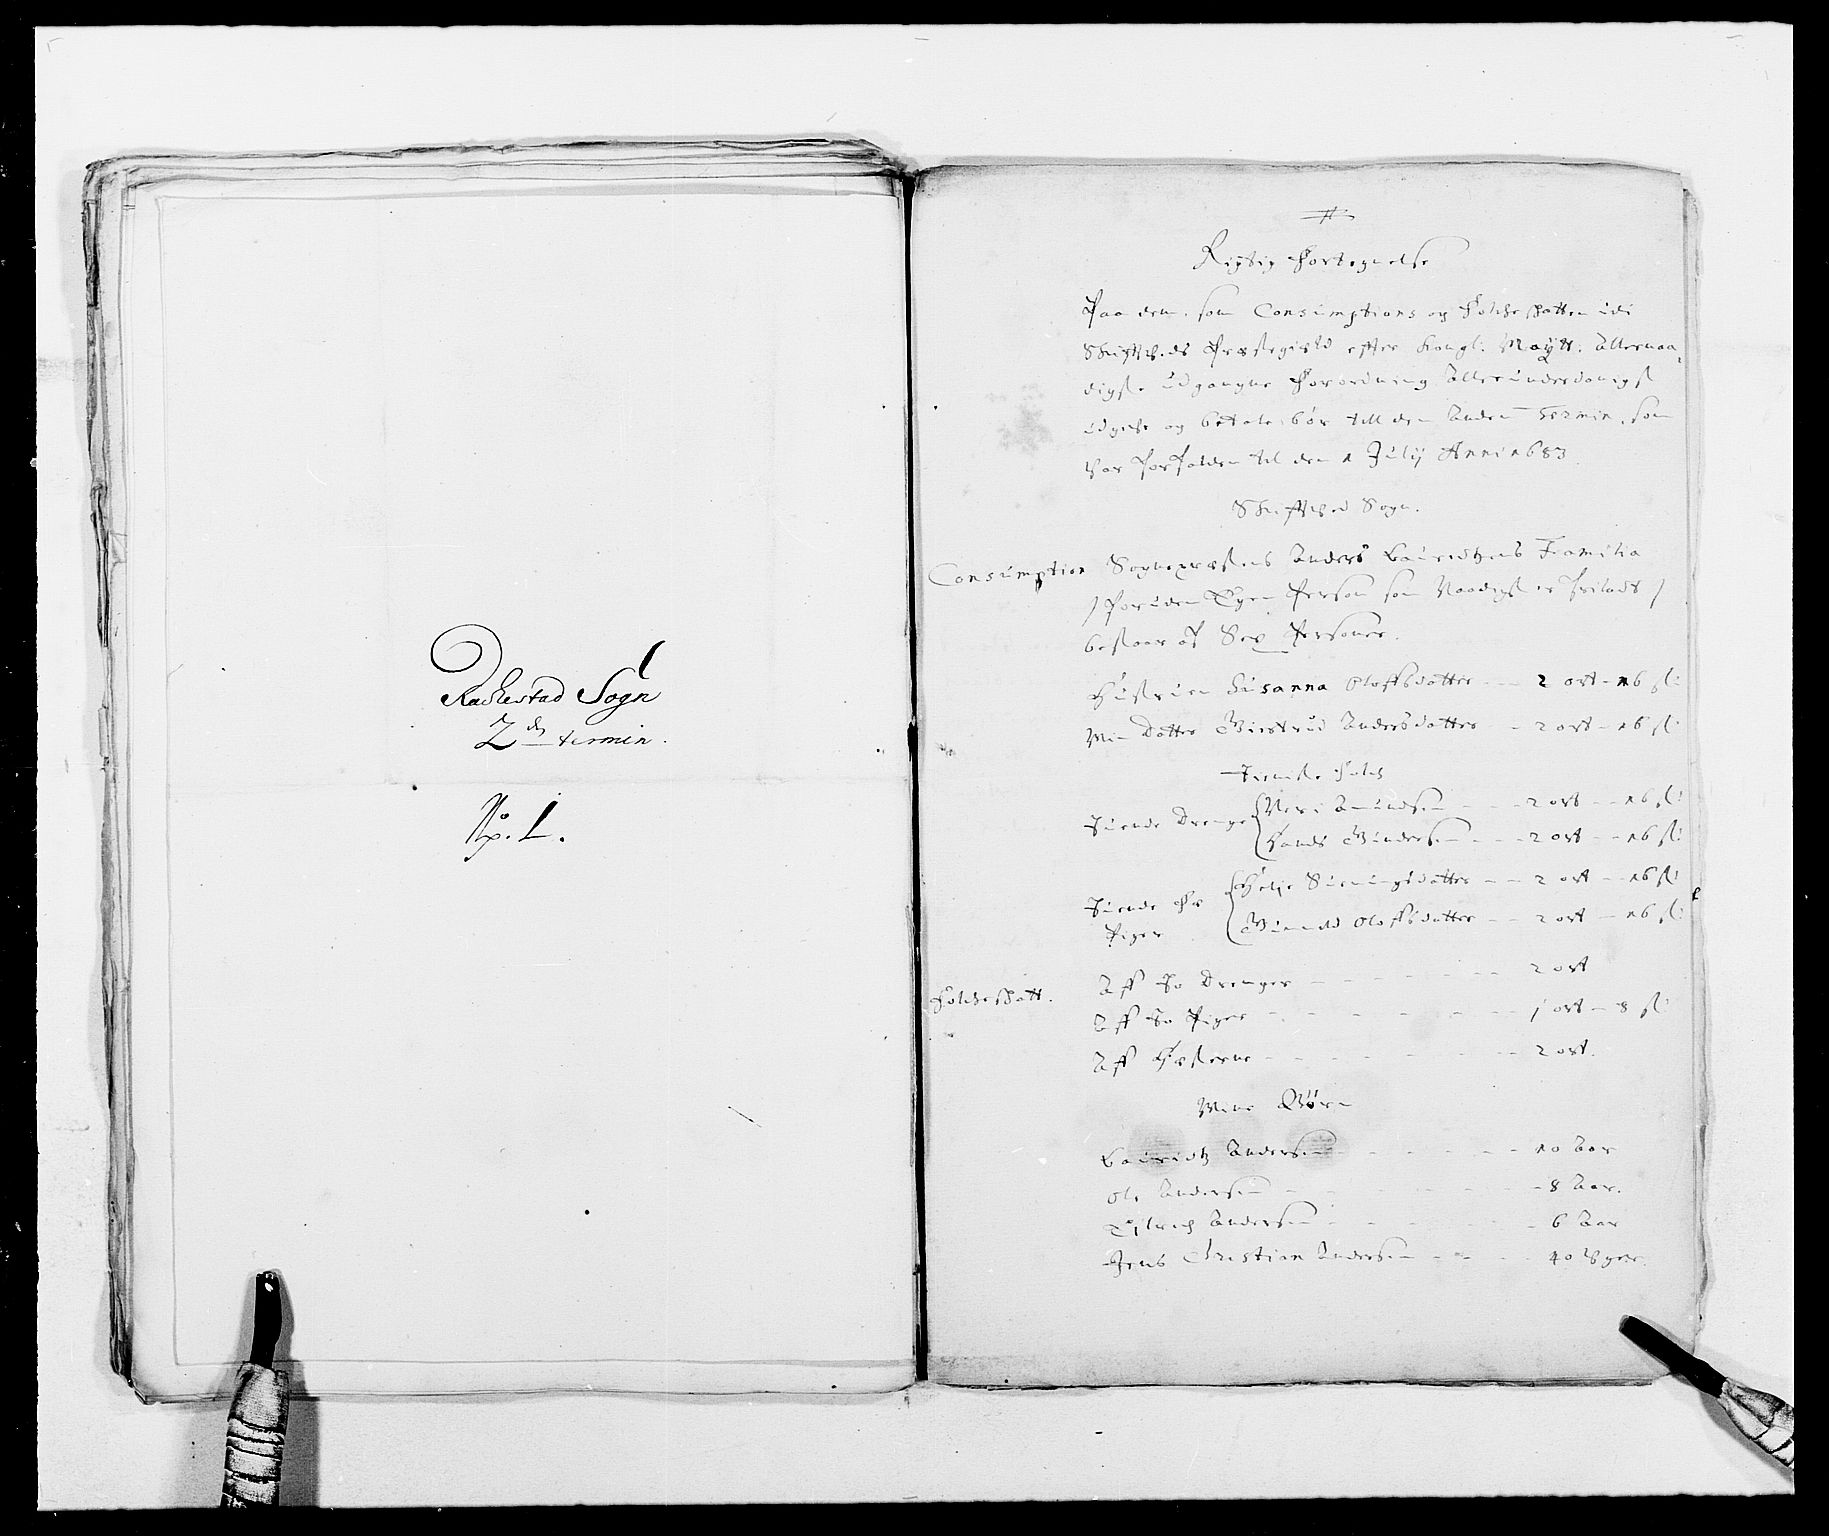 Rachestad Sogn
2den termin.
No. 1.
Rigtig Fortegnelse
Paa dem, som Consumptions og Folcheschatten udi
Skiptveds Præstegield efter Kongl: Maytt: Allernaa
digste udgangne Forordning Allerunderdanigst
udgifve og betale bør till den Anden Termin, som
var forfalden til den 1 Julij Anni 1683
Skiptved Sogn.
Consumption Sognepræstens Anders Lauridtzens Familia
/ foruden Egen Person som Naadigst er friladt /
bestaar af Sex Personer.
Hustruen Susanna Olofsdatter -- 2 ort - 16 sk:
Min Datter Giertrud Andersdatter -- 2 ort - 16 sk:
Tieniste Folch
Tiende Drenge Amundsen - - - 2 ort - 16 sk:
Hands Gundersen - - - 2 ort - 16 sk:
Tiende Piger Helje -- 2 ort - 16 sk:
Olofsdatter -- 2 ort - 16 sk:
Folcheschatt. Aff To Drenger - - - 2 ort
Aff To Piger - - - 1 ort - 8 sk:
Aff Hæsterne - - - 2 ort.
Mine Børn
Lauridtz Andersen - - - 10 Aar
Ole Andersen - - - 8 Aar.
Andersen - - - 6 Aar
Jens Christian Andersen - - - 40 Uger.